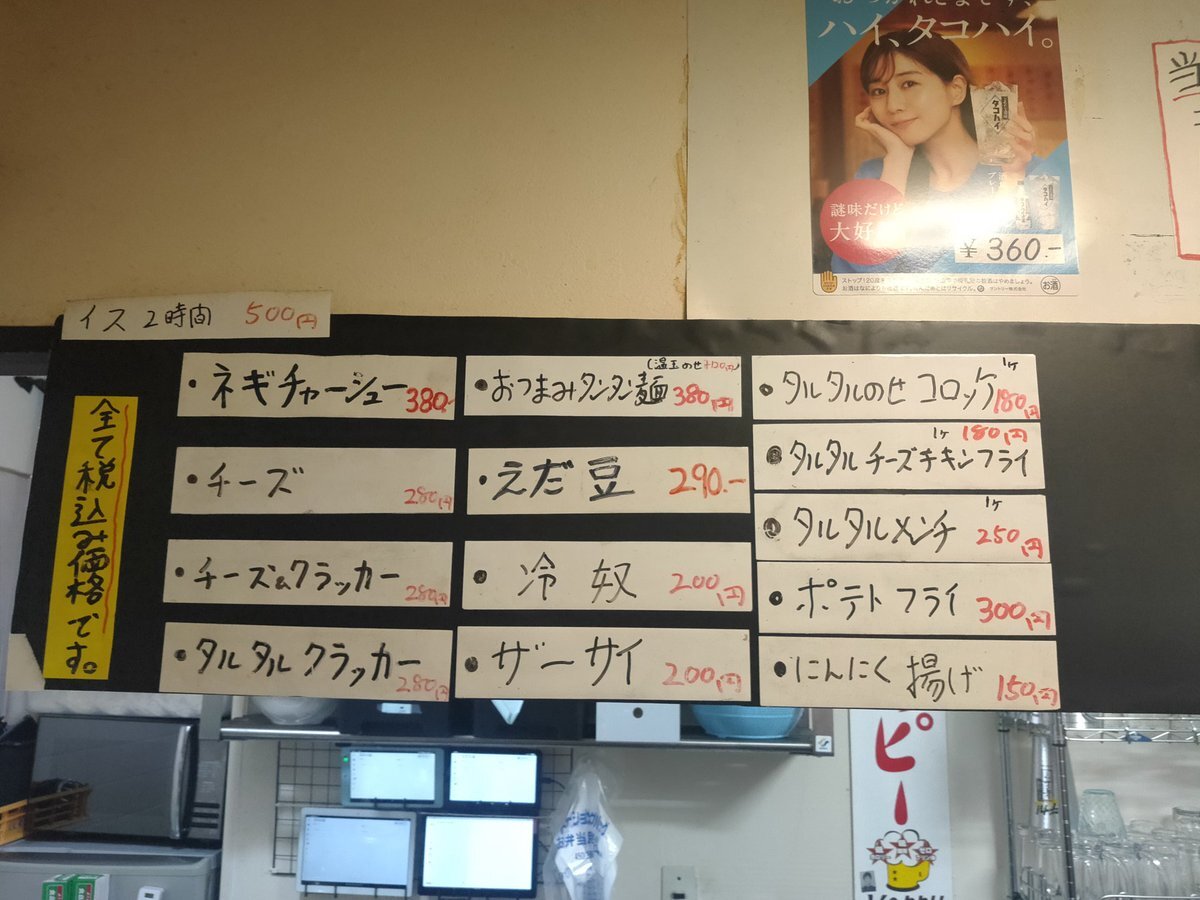 ハイ、タコハイ。
タコハイ
謎味だけど
大好
¥360.-
お酒
イス 2時間 500円
全て税込み価格です。
・ネギチャーシュー 380.-
・チーズ 280円
・チーズ&クラッカー 280円
・タルタルクラッカー 280円
(温玉のせ+120円)
・おつまみタンタン麺 380円
・えだ豆 290.-
・冷奴 200円
・ザーサイ 200円
1ケ
・タルタルのせコロッケ 180円
1ケ 180円
・タルタルチーズチキンフライ
1ケ
・タルタルメンチ 250円
・ポテトフライ 300円
・にんにく揚げ 150円
ピー